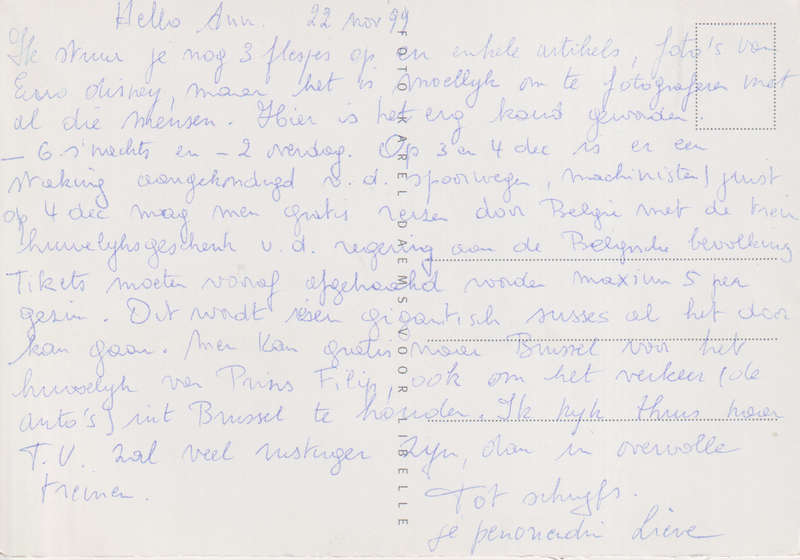 Hello Ann. 22 nov '99
Ik stuur je nog 3 flesjes op en enkele artikels, foto's van
Euro disney, maar het is moeilyk om te fotograferen met
al die mensen. Hier is het erg koud geworden.
- 6 s'nachts en - 2 overdag. Op 3 en 4 dec is er een
staking aangekondigd v.d. spoorwegen, machinisten) juist
op 4 dec mag men gratis reizen door België met de trein
huwelyksgeschenk v.d. regering aan de Belgische bevolking
Tikets moeten vooraf afgehaald worden maximum 5 per
gezin. Dit wordt een gigantisch susses als het door
kan gaan. Men kan gratis naar Brussel voor het
huwelyk van Prins Filip, ook om het verkeer (de
auto's) uit Brussel te houden. Ik kyk thuis naar
T.V. zal veel rustiger zyn, dan in overvolle
treinen.
Tot schryfs.
je penvriendin Lieve
FOTO KAREL DAEMS VOOR LIBELLE